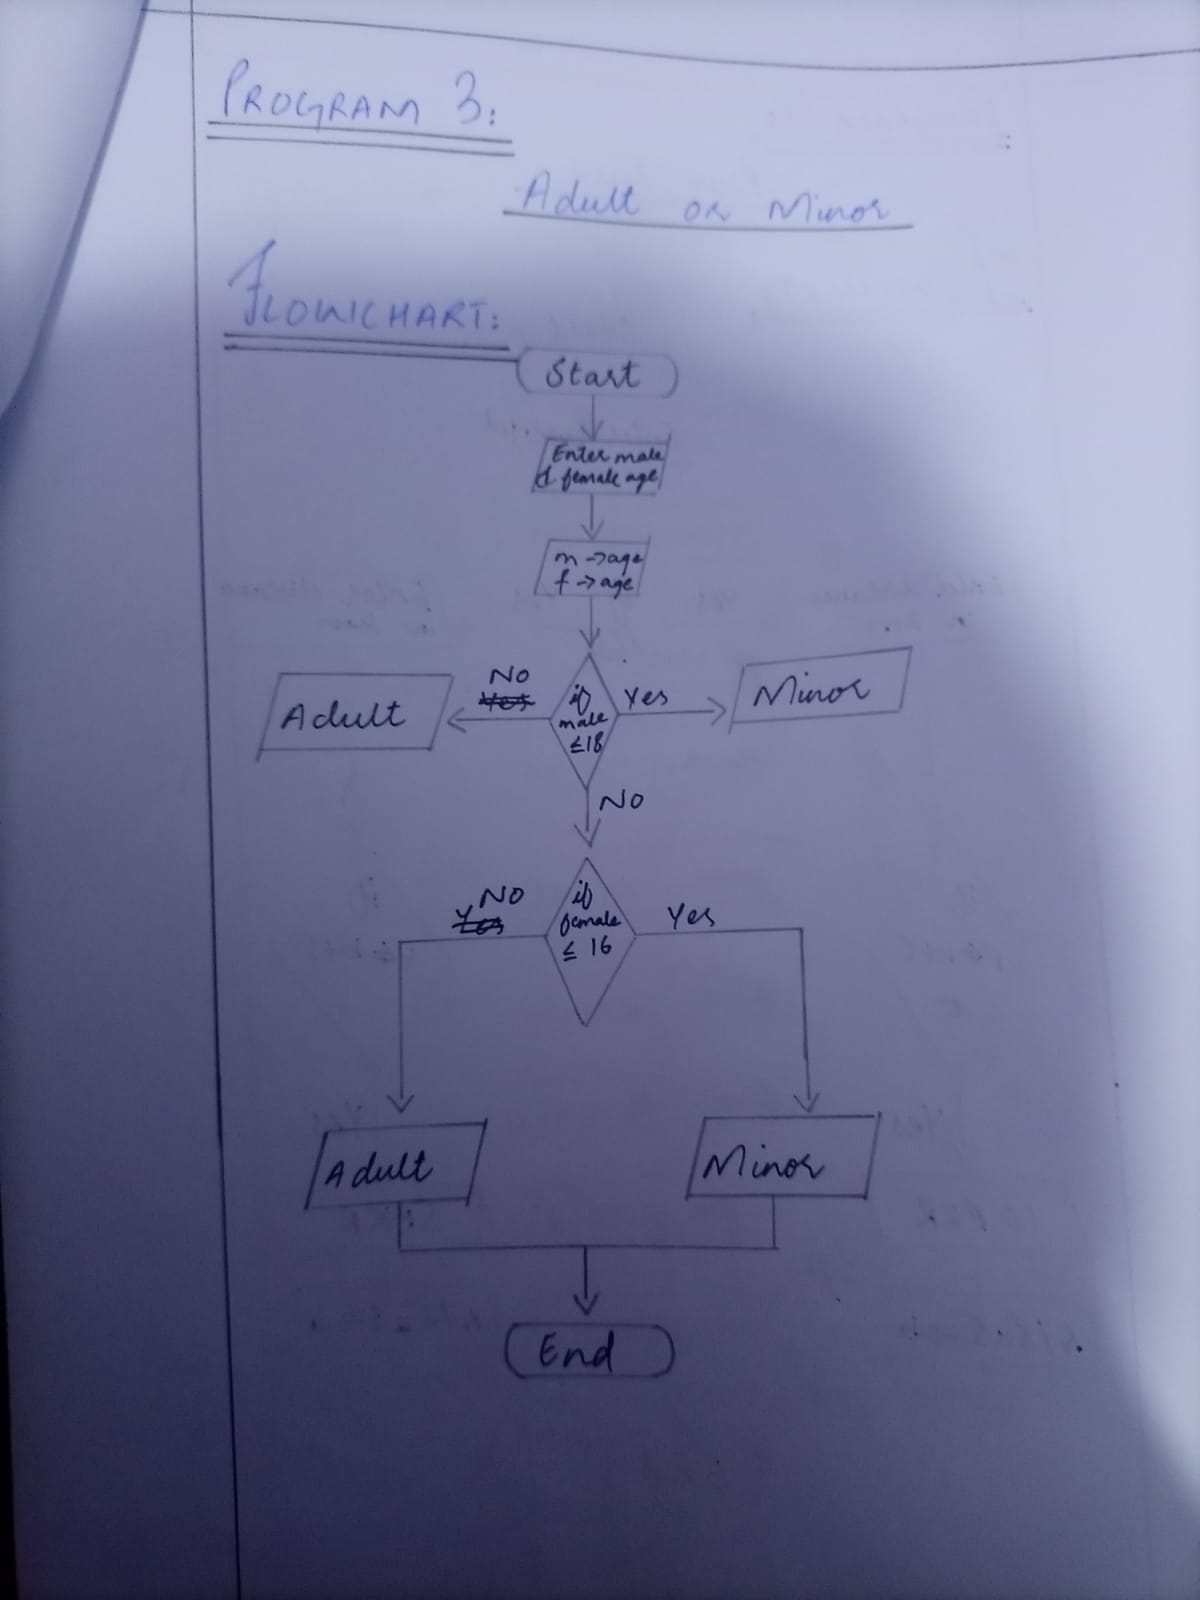 PROGRAM 3:
Adult or Minor
FLOWCHART:
Start
Enter male
& female age
m → age
f → age
if
male
≤18
No
Yes
Yes
Adult
Minor
No
if
female
≤ 16
No
Yes
Yes
Adult
Minor
End